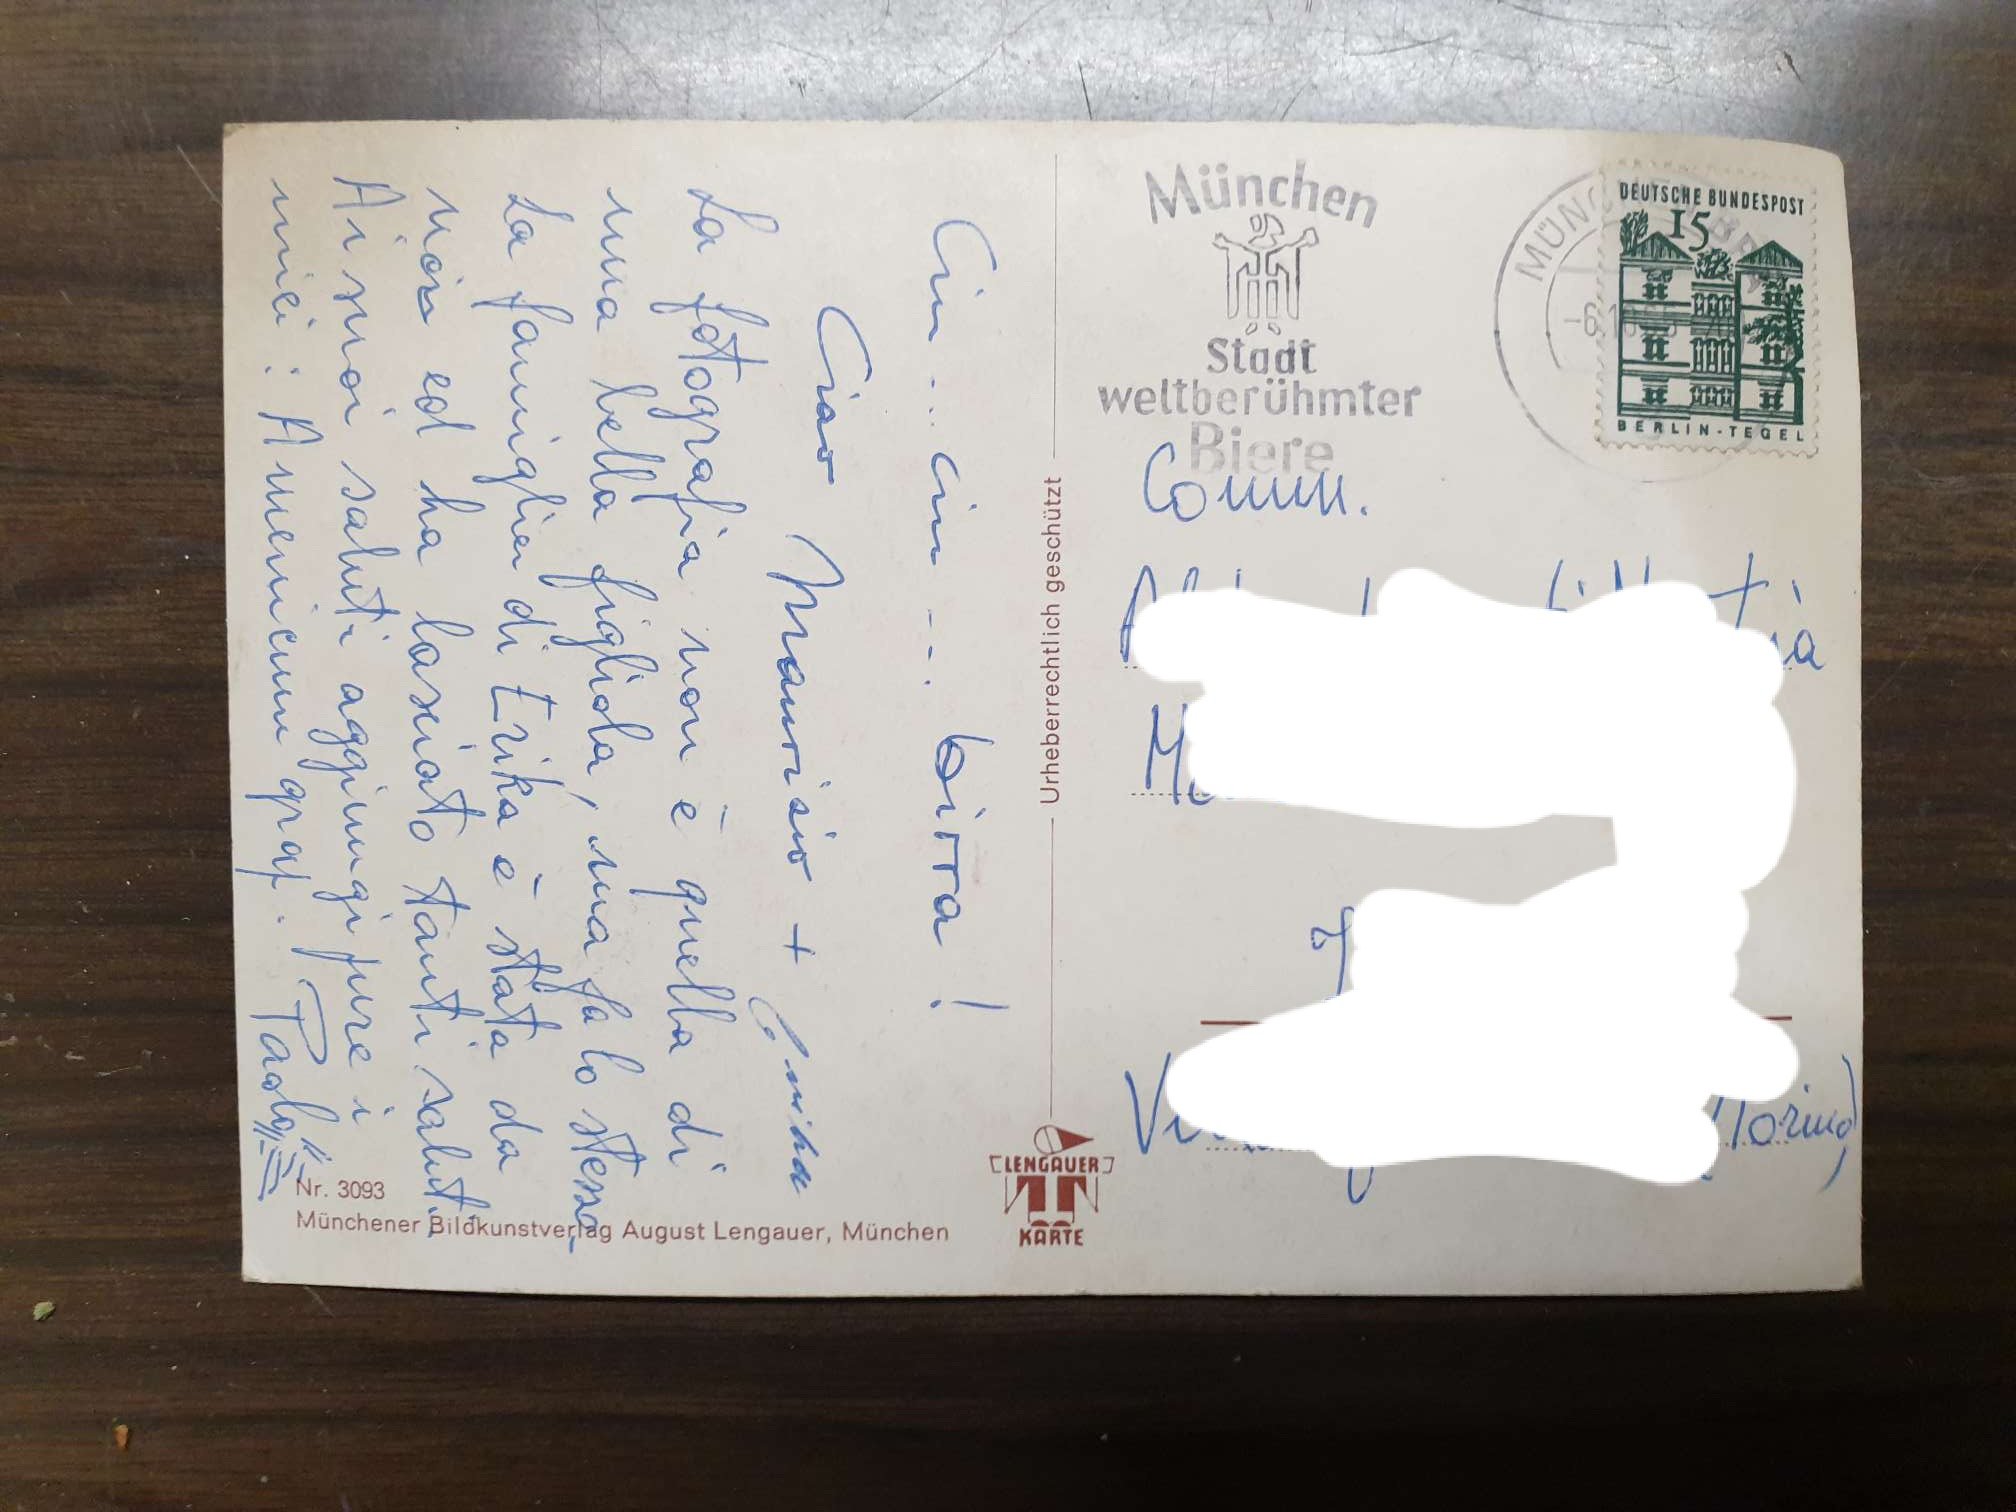 Cin... cin... birra!
Ciao Maurizio +
La fotografia non è quella di
una bella figliola, ma fa lo stesso,
La famiglia di Erika è stata da
noi ed ha lasciato tanti saluti.
Ai suoi saluti aggiungi pure i
miei: A.
Paolo
Nr. 3093
Münchener Bildkunstverlag August Lengauer, München
Urheberrechtlich geschützt
LENGAUER
KARTE
München
Stadt
weltberühmter
Biere
DEUTSCHE BUNDESPOST
15
BERLIN-TEGEL
Comm.
(Torino)